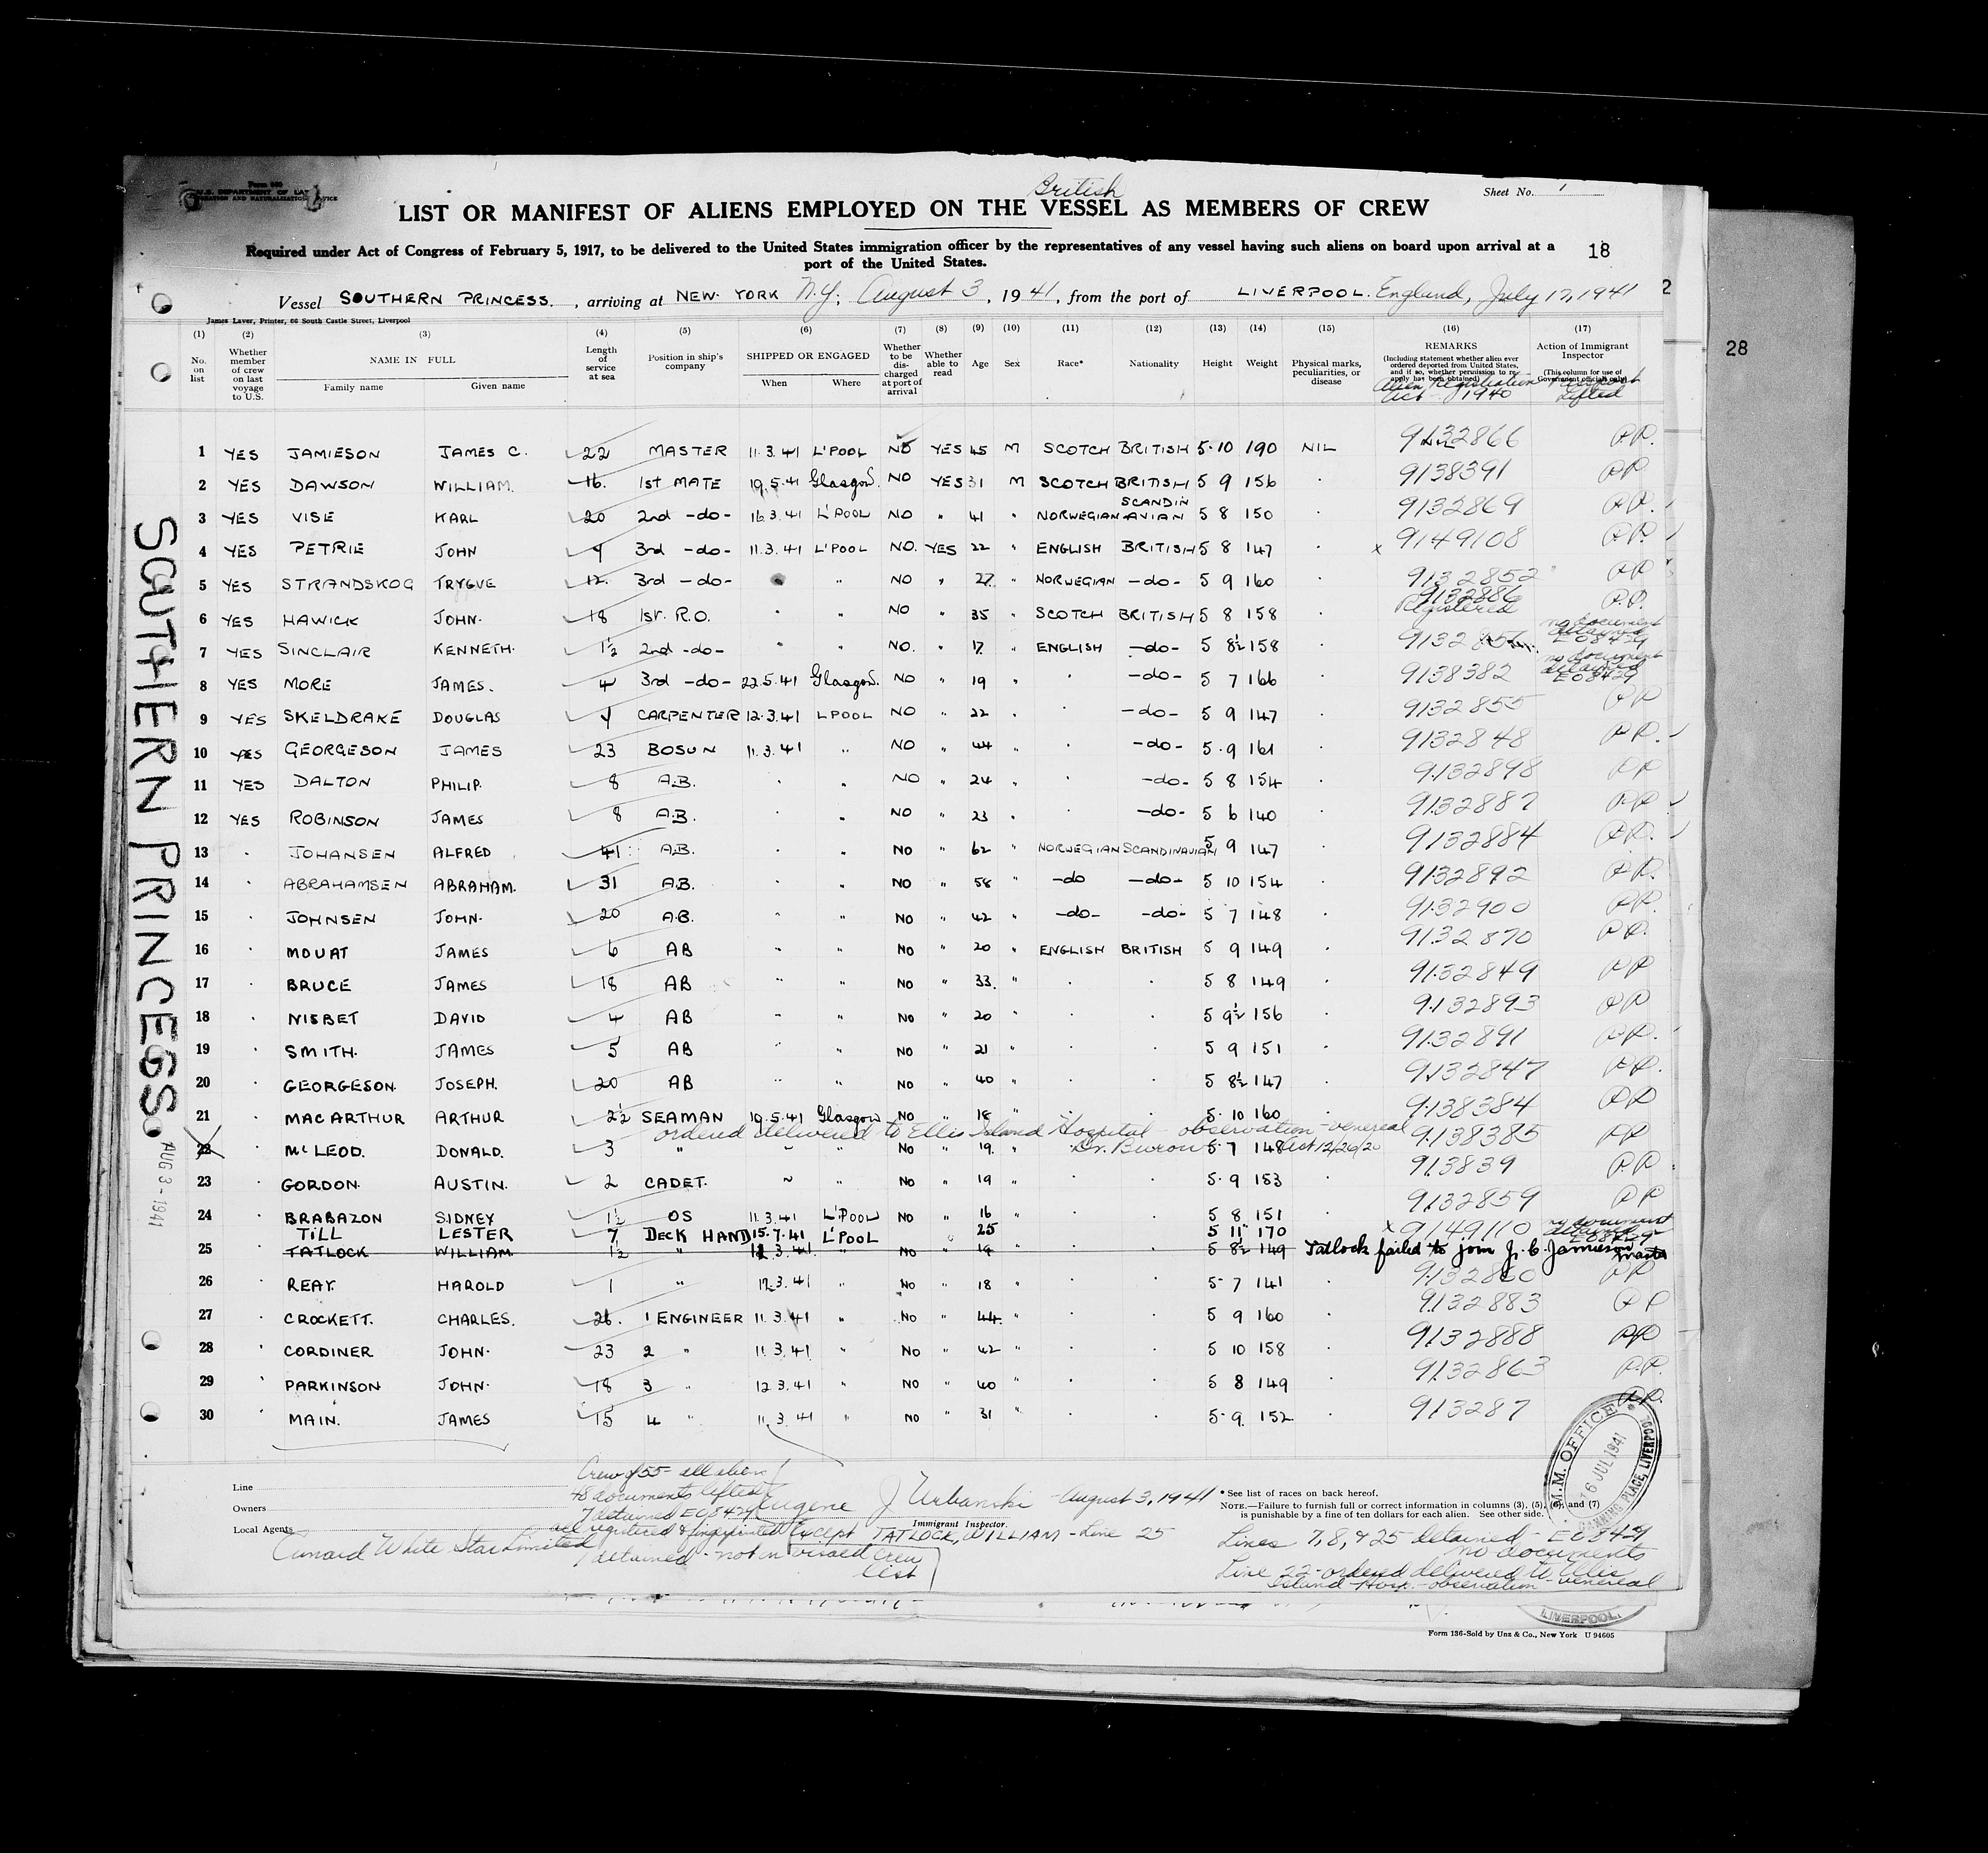 British
Sheet No. 1
LIST OR MANIFEST OF ALIENS EMPLOYED ON THE VESSEL AS MEMBERS OF CREW
Required under Act of Congress of February 5, 1917, to be delivered to the United States immigration officer by the representatives of any vessel having such aliens on board upon arrival at a
port of the United States.
18
Vessel SOUTHERN PRINCESS. , arriving at NEW YORK N.Y; August 3, 1941, from the port of LIVERPOOL. England, July 17, 1941
2
28
James Laver, Printer, 66 South Castle Street, Liverpool
(1) (2) (3) (4) (5) (6) (7) (8) (9) (10) (11) (12) (13) (14) (15) (16) (17)
No. on list
Whether member of crew on last voyage to U.S.
NAME IN FULL
Family name Given name
Length of service at sea
Position in ship's company
SHIPPED OR ENGAGED
When Where
Whether to be discharged at port of arrival
Whether able to read
Age
Sex
Race*
Nationality
Height
Weight
Physical marks, peculiarities, or disease
REMARKS
(Including statement whether alien ever ordered deported from United States, and if so, whether permission to reapply has been obtained)
Alien Registration Act of 1940
Action of Immigrant Inspector
(This column for use of Government officials only)
lifted
1 YES JAMIESON JAMES C. 22 MASTER 11.3.41 L'POOL NO YES 45 M SCOTCH BRITISH 5·10 190 NIL 9132866 PP.
2 YES DAWSON WILLIAM. 16. 1st MATE 19.5.41 Glasgow. NO YES 31 M SCOTCH BRITISH 5 9 156 · 9138391 PP
3 YES VISE KARL 20 2nd -do- 16.3.41 L'POOL NO " 41 " NORWEGIAN SCANDINAVIAN 5 8 150 · 9132869 PP.
4 YES PETRIE JOHN 4 3rd -do- 11.3.41 L'POOL NO. YES 22 " ENGLISH BRITISH 5 8 147 · x 9149108 PP.
5 YES STRANDSKOG TRYGVE 12. 3rd -do- " " NO " 27. " NORWEGIAN -do- 5 9 160 · 9132852 PP
6 YES HAWICK JOHN. 18 1st. R.O. " " NO " 35 " SCOTCH BRITISH 5 8 158 · 9132886 Registered P.P.
7 YES SINCLAIR KENNETH. 1½ 2nd -do- " " NO. " 17 " ENGLISH -do- 5 8½ 158 · no document detained EO8429
8 YES MORE JAMES. 4 3rd -do- 22.5.41 Glasgow. NO " 19 " " -do- 5 7 166 · 9138382 no document detained EO8429
9 YES SKELDRAKE DOUGLAS 4 CARPENTER 12.3.41 LPOOL NO " 22 " " -do- 5 9 147 · 9132855 PP
10 YES GEORGESON JAMES 23 BOSUN 11.3.41 " NO " 44 " " -do- 5·9 161 · 9132848 PP.
11 YES DALTON PHILIP. 8 A.B. " " NO " 24 " " -do- 5 8 154 · 9132898 PP
12 YES ROBINSON JAMES 8 A.B. " " NO " 23 " " -do- 5 6 140 · 9132887 PP
13 " JOHANSEN ALFRED 41 A.B. " " NO " 62 " NORWEGIAN SCANDINAVIAN 5 9 147 · 9132884 PP.
14 " ABRAHAMSEN ABRAHAM. 31 A.B. " " NO " 58 " -do -do- 5 10 154 · 9132892 PP.
15 " JOHNSEN JOHN. 20 A.B. " " NO " 42 " -do- -do- 5 7 148 · 9132900 PP.
16 " MOUAT JAMES 6 AB " " NO " 20 " ENGLISH BRITISH 5 9 149 · 9132870 PP.
17 " BRUCE JAMES 18 AB " " NO " 33. " " " 5 8 149 · 9132849 PP
18 " NISBET DAVID 4 AB " " NO " 20 " " " 5 9½ 156 · 9132893 PP
19 " SMITH. JAMES 5 AB " " NO " 21 " " " 5 9 151 · 9132891 PP.
20 " GEORGESON. JOSEPH. 20 AB " " NO " 40 " " " 5 8½ 147 · 9132847 PP.
21 " MACARTHUR ARTHUR 2½ SEAMAN 19.5.41 Glasgow NO " 18 " " " 5·10 160 9138384 PP
ordered delivered to Ellis Island Hospital - observation - venereal
22 " McLEOD. DONALD. 3 " " " NO " 19. " Dr. Buron 5·7 148 Act 12/26/20 9138385 PP
23 " GORDON. AUSTIN. 2 CADET. " " NO " 19 " " " 5·9 153 · 913839 PP
24 " BRABAZON SIDNEY 1½ OS 11.3.41 L'POOL NO " 16 " " " 5 8 151 · 9132859 PP
TILL LESTER 7 DECK HAND 15.7.41 L'POOL 25 5 11 170 x 9149110 no document detained EO8429
25 " TATLOCK WILLIAM 1½ " 12.3.41 " NO " 18 " " " 5 8½ 149 Tatlock failed to join J. C. Jamieson master
26 " REAY. HAROLD 1 " 12.3.41 " NO " 18 " " " 5·7 141 · 9132860 PP
27 " CROCKETT. CHARLES. 26. 1 ENGINEER 11.3.41 " NO " 44. " " " 5 9 160 · 9132883 PP
28 " CORDINER JOHN. 23 2 " 11.3.41 " NO " 42 " " " 5 10 158 · 9132888 PP
29 " PARKINSON JOHN. 18 3 " 12.3.41 " NO " 40 " " " 5 8 149 · 9132863 P.P.
30 " MAIN. JAMES 15 4 " 11.3.41 " NO " 31 " " " 5·9. 152 · 913287 PP.
SOUTHERN PRINCESS.
AUG 3 - 1941
Crew of 55 - all aliens
48 documents lifted
7 detained EO8429
all registered & fingerprinted Except TATLOCK, WILLIAM - Line 25
1 detained - not on visaed crew list
Line
Owners
Local Agents Cunard White Star Limited
Eugene J Urbanski - August 3, 1941
Immigrant Inspector.
*See list of races on back hereof.
NOTE.—Failure to furnish full or correct information in columns (3), (5), (6), and (7)
is punishable by a fine of ten dollars for each alien. See other side.
Lines 7, 8, & 25 detained - EO8429
no documents
Line 22 - ordered delivered to Ellis
Island Hosp. - observation - venereal
M.M. OFFICE
16 JUL 1941
CANNING PLACE, LIVERPOOL
LIVERPOOL.
Form 136-Sold by Unz & Co., New York U 94605